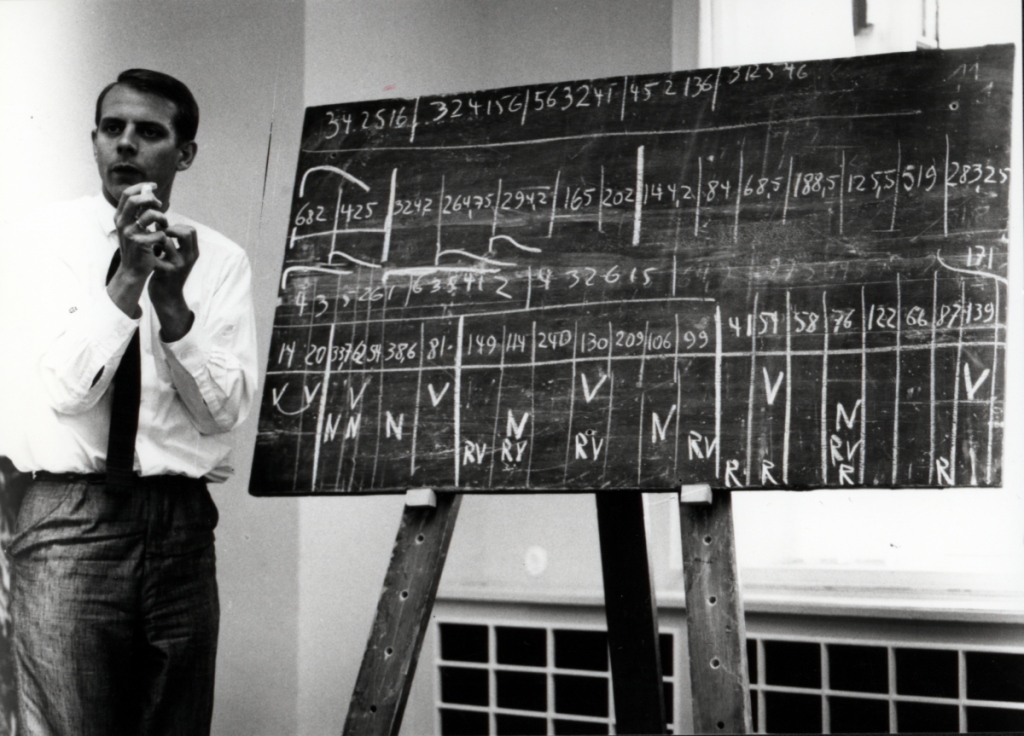 342516 | 324156 | 563241 | 452136 | 312546
11
682 | 425 | 324,2 | 264,75 | 294,2 | 165 | 202 | 144,2 | 84 | 68,5 | 188,5 | 125,5 | 519 | 283,25
171
435261 | 638412 | 432615
14 20 81 149 114 240 130 209 106 99 41 54 58 76 122 66 87 139
V V V V V V V
N N N N N N
RV RV RV RV RV
R R R R